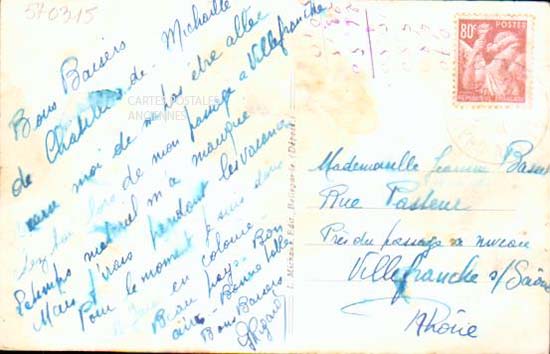 570315
Bons Baisers
de Chatillon de Michaille
moi de m'pas être allée
lors de mon passage a Villefranche
temps matériel m'a manqué
Mais j'irais pendant les vacances
Pour le moment je suis dans
en colonie
Beau pays. Bon
air. Bonne
Bons Baisers
CARTES POSTALES
ANCIENNES
80c
POSTES
REPUBLIQUE FRANÇAISE
Mademoiselle Jeanne
Rue Pasteur
Près du passage a niveau
Villefranche s/Saône
Rhône